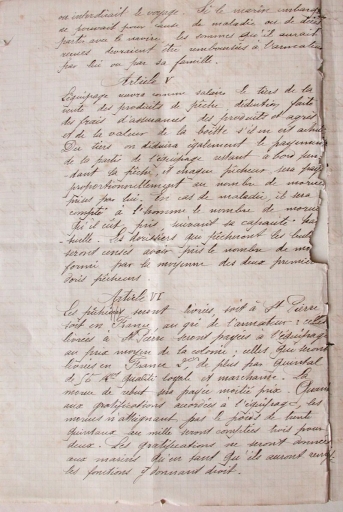 en interdisait le voyage. Si le marin embarqué
ne pouvait pour cause de maladie ou de
partir avec le navire les sommes qu'il aurait
reçues devraient être remboursées à l'armateur
par lui ou par sa famille.
Article V
L'équipage aura comme salaire le tiers de la
vente des produits de pêche, déduction faite
des frais d'assurances des produits et agrès
et de la valeur de la boitte s'il en est acheté
Du tiers on déduira également le payement
de la partie de l'équipage restant à bord pen
dant la pêche, et chaque pêcheur sera payé
proportionnellement au nombre de morues
prises par lui. En cas de maladie, il sera
compté à l'homme le nombre de morues
qu'il eut pris suivant sa capacité
Les dorissiers qui pêcheront les
seront censés avoir pris le nombre de mo
formé par la moyenne des deux premiers
doris pêcheurs
Article VI
Les pêches seront livrées soit à St Pierre
soit en France, au gré de l'armateur: celles
livrées à St Pierre seront payées à l'équipage
au prix moyen de la colonie; celles qui seront
livrées en France 2 de plus par quintal
de 50 Kos qualité loyale et marchande. La
morue de rebut sera payée moitié prix. Quant
aux gratifications accordées à l'équipage, les
morues n'atteignant pas le poids de trente
quintaux au mille seront comptées trois pour
deux. Les gratifications ne seront
aux marins qu'en tant qu'ils auront rempli
les fonctions y donnant droit.